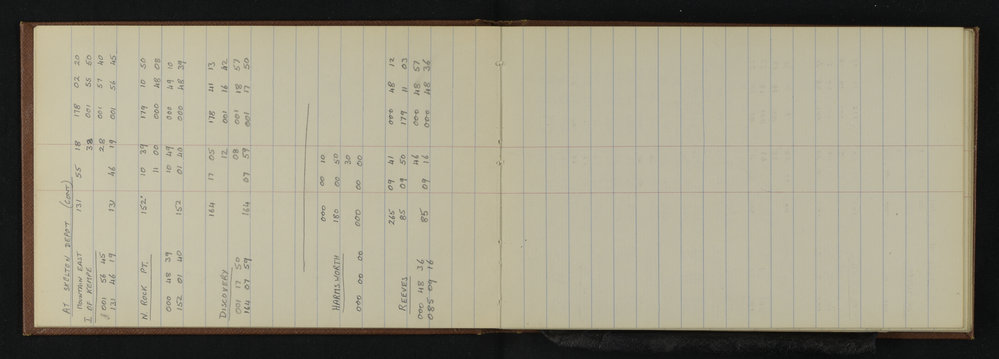 AT SKELTON DEPOT (CONT)
MOUNTAIN EAST 131 55 18 178 02 20
I OF KEMPE 38 001 55 50
001 56 45 28 001 57 40
131 46 19 131 46 19 001 56 45
N ROCK PT. 152° 10 39 179 10 50
11 00 000 48 08
000 48 39 10 49 000 49 10
152 01 40 152 01 40 000 48 39
164 17 05 178 41 13
DISCOVERY 12 001 16 42
001 17 50 08 001 18 57
164 07 59 164 07 59 001 17 50
000 00 10
HARMSWORTH 180 00 50
30
000 00 00 000 00 00
265 09 41 000 48 12
REEVES 85 09 50 179 11 03
000 48 36 46 000 48 57
085 09 16 85 09 16 000 48 36